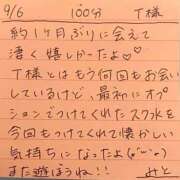 9/6 100分 T様
約1ヶ月ぶりに会えて
凄く嬉しかったよ♡♡
T様とはもう何回もお会い
しているけど、最初にオプ
ションでつけてくれたスク水を
今回もつけてくれて懐かしい
気持ちになったよ(o^^o)
また遊ぼうね!! みと